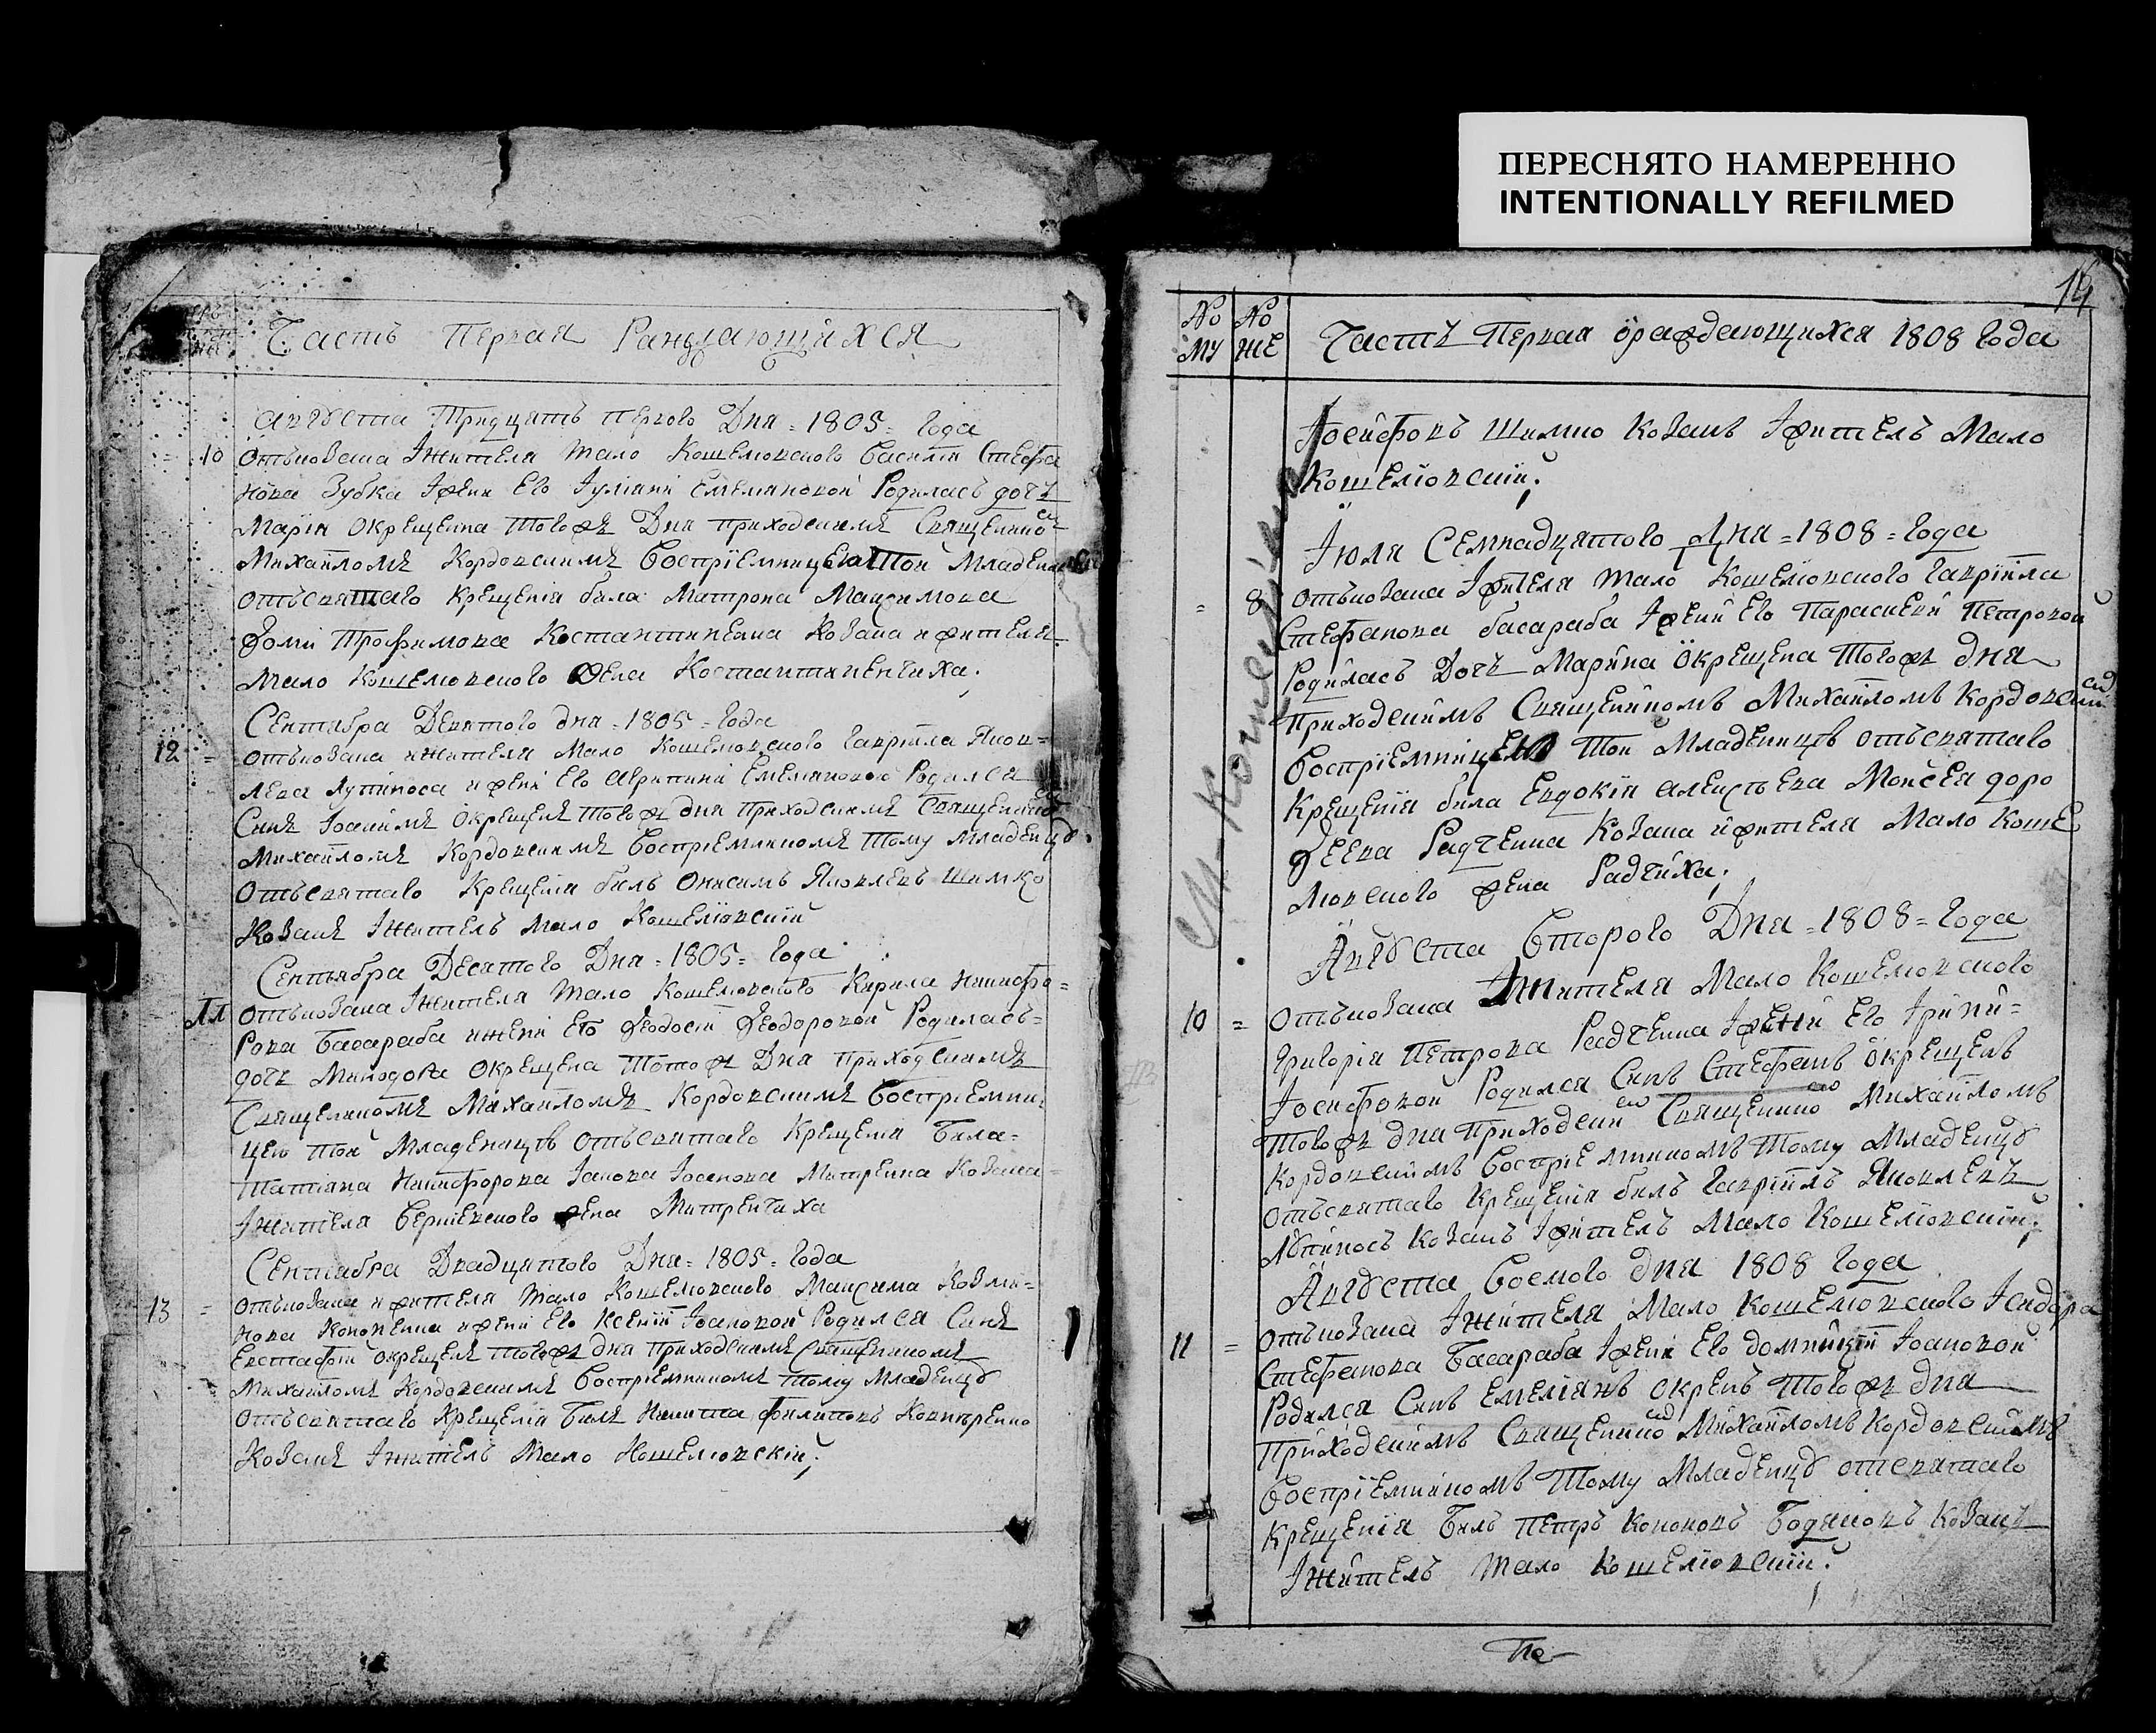 ПЕРЕСНЯТО НАМЕРЕННО
INTENTIONALLY REFILMED
Часть Первая Раждающихся
Августа Тридцать первого Дня = 1805 = Года
10 Отъкозака Жителя Мало Кошелювского Василія Стефа
нова Зубка Іжени Его Іуліаніи Емеліановой Родилась дочъ
Марія Окрещенна Тогожъ Дня приходскимъ Священико
Михаиломъ Кордовскимъ Воспріемницею Той Младеници
отъсвятаго Крещенія била Матрона Максимова
Фоми Трофимова Костантиненка Козака ижителя
Мало Кошелювского Жена Костантиненчиха;
Сентября Девятого дня = 1805 = Года
12 = отъкозака ижителя Мало Кошелювского Гавріила Яков=
лева Лупиноса ижени Его Агрипини Емеліановой Родился
Синъ Іоакимъ Окрещенъ Тогожъ дня Приходскимъ Священико
Михаиломъ Кордовскимъ Воспріемникомъ Тому Младенцу
Отъсвятаго Крещенія билъ Онисимъ Яковлевъ Шимко
Козакъ Іжитель Мало Кошелювскій
Сентября Десятого Дня = 1805 = Года
11 Отъкозака Іжителя Мало Кошелювского Кирила Никифо=
рова Басараба ижени Его Феодосіи Феодоровой Родилась=
дочъ Минодора Окрещена Тогожъ Дня Приходскимъ
Священикомъ Михаиломъ Кордовскимъ Воспріемни=
цею той Младеницѣ отъсвятаго Крещенія Била=
Татіана Никифорова Іакова Іосипова Митренка Козака=
Іжителя Веркіевского жена Митренчиха
Сентября Двадцятого Дня = 1805 = Года
13 = отъкозака ижителя Мало Кошелювского Максима Козми=
нова Кононенка ижени Его Ксеніи Іоановой Родился Синъ
Евстафій окрещенъ тогожъ дня Приходскимъ Священикомъ
Михаиломъ Кордовскимъ Воспріемникомъ Тому Младенцу
отъсвятаго Крещенія Билъ Никита Филиповъ
Козакъ Іжитель Мало Кошелювскій;
No No
му же
Часть Первая ораждающихся 1808 Года
Іосифовъ Шимко Козакъ Іжитель Мало
Кошелювскій;
Іюля Семнадцятого Дня = 1808 = Года
= 8 отъкозака Іжителя Мало Кошелювского Гавріила
Стефанова басараба Іжени Его Параскеви Петровой
Родилась Дочъ Марина Окрещена Тогожъ дня
Приходскимъ Священикомъ Михаиломъ Кордовским
Воспріемницею Той Младеницѣ отъсвятаго
Крещенія била Евдокія алексѣева Моисея доро
феева Радченка Козака ижителя Мало Коше
лювского жена Радчиха;
Августа Второго Дня = 1808 = Года
10 = Отъкозака Іжителя Мало Кошелювского
Григорія Петрова Радченка Іжени Его Ірини=
Іосифовой Родился Синъ Стефанъ окрещенъ
Тогожъ дня приходски Священико Михаиломъ
Кордовскимъ Воспріемникомъ Тому Младенцу
отъсвятаго Крещенія билъ Гавріилъ Яковлевъ
Лупиносъ Козакъ Іжитель Мало Кошелювскій;
Августа Восмого дня 1808 Года
11 = отъкозака Іжителя Мало Кошелювского Ісидора
Стефанова Басараба Іжени Его домникіи Іоановой
Родился Синъ Емеліанъ окренъ Тогожъ дня
Приходскимъ Священико Михаиломъ Кордовскимъ
Воспріемникомъ Тому Младенцу отсвятаго
Крещенія Билъ Петръ Кононовъ Козакъ
Іжитель Мало Кошелювскій;